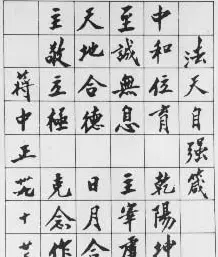 法天自强箴
中和位育 乾陽坤
至誠無息 主宰虛
天地合德 日月合
主敬立極 克念作
蒋中正 十